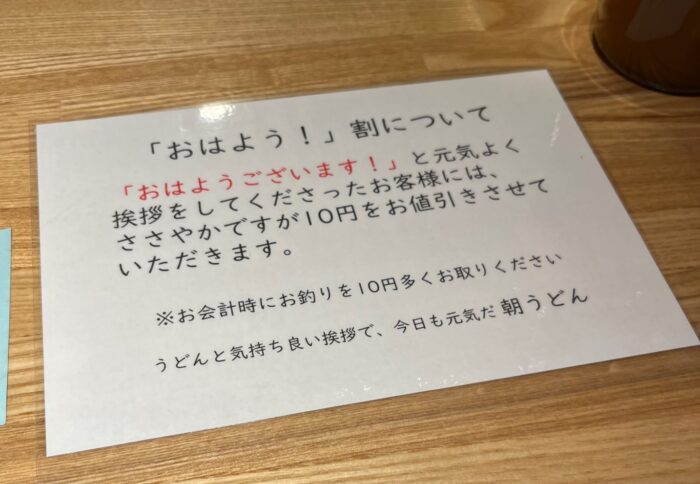 「おはよう！」割について
「おはようございます！」と元気よく
挨拶をしてくださったお客様には、
ささやかですが10円をお値引きさせて
いただきます。
※お会計時にお釣りを10円多くお取りください
うどんと気持ち良い挨拶で、今日も元気だ 朝うどん